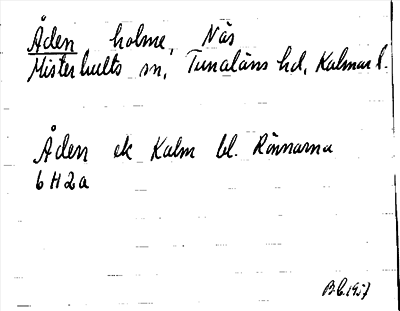 Åden holme, Näs
Misterhults sn, Tunaläns hd, Kalmar l.
Åden ek Kalm bl. Rönnarna
6 H 2 a
B.C. 1957